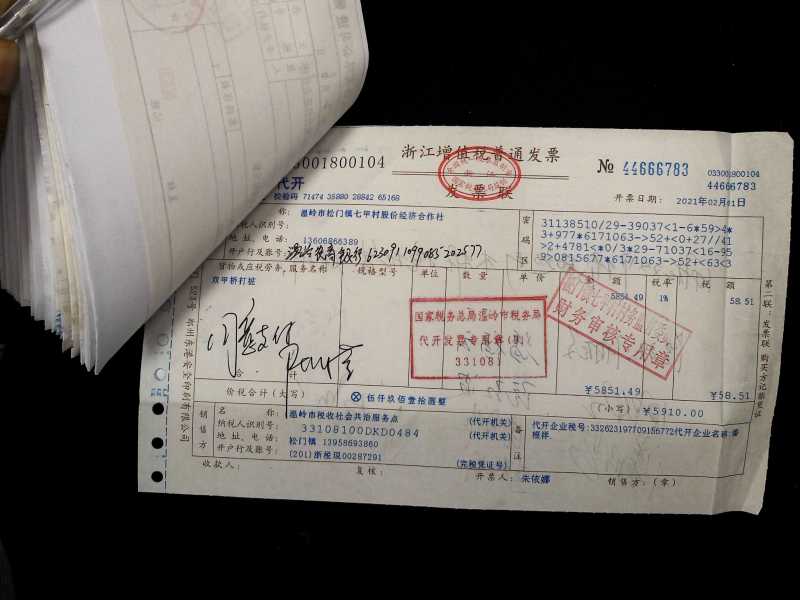 3001800104
浙江增值税普通发票
№ 44666783
033001800104
44666783
代开
发票联
校验码 71474 35880 28842 65168
开票日期： 2021年02月01日
名称： 温岭市松门镇七甲村股份经济合作社
纳税人识别号：
地址、电话： 13606866389
开户行及账号：
密码区
31138510/29-39037<1-6*59>4*
3+977*6171063->52+<0+27//41
>2+4781<*0/3*29-71037<16-95
9>0815677*6171063->52+<63<3
货物或应税劳务、服务名称 规格型号 单位 数量 单价 金额 税率 税额
双甲桥打桩 5851.49 1% 58.51
国家税务总局温岭市税务局
代开发票专用章(9)
33108
财务审核专用章
合计 ¥5851.49 ¥58.51
价税合计（大写） ⊗ 伍仟玖佰壹拾圆整 (小写) ¥5910.00
销售方
名称： 温岭市税收社会共治服务点 (代开机关)
纳税人识别号： 33108100DKD0484 (代开机关)
地址、电话： 松门镇 13958693860
开户行及账号： (201)浙税现00287291 (完税凭证号)
备注
代开企业税号:332623197709156772代开企业名称:
根祥.
收款人： 复核： 开票人： 朱依娜 销售方：（章）
第二联：发票联 购买方记账凭证